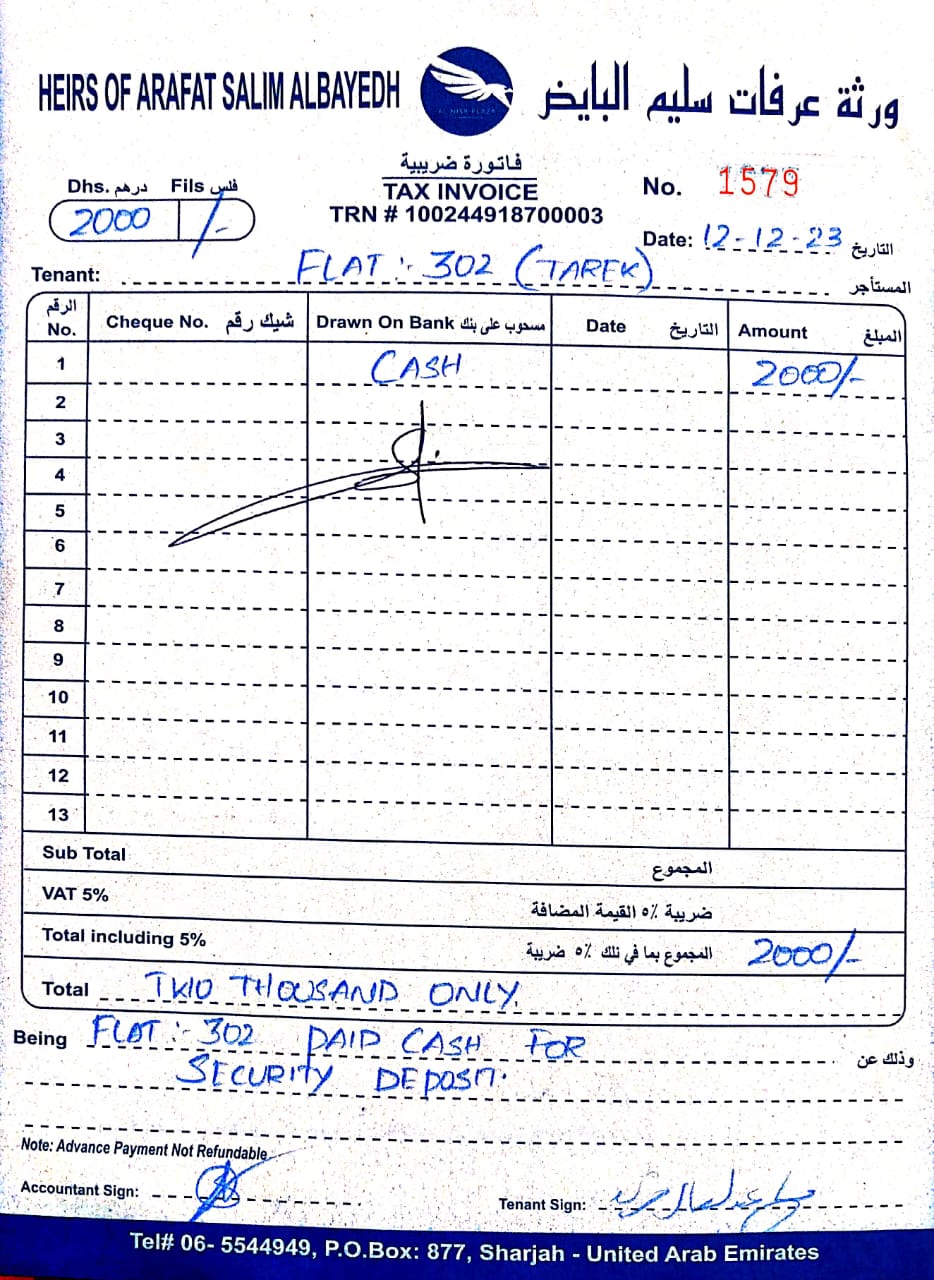 HEIRS OF ARAFAT SALIM ALBAYEDH
ورثة عرفات سليم البايض
AL NISR PLAZA
فاتورة ضريبية
TAX INVOICE
TRN # 100244918700003
Dhs. درهم Fils فلس
2000 /-
No. 1579
Date: 12-12-23 التاريخ
Tenant: FLAT :- 302 (TAREK) المستأجر
الرقم No. Cheque No. شيك رقم Drawn On Bank مسحوب على بنك Date التاريخ Amount المبلغ
1 CASH 2000/-
2
3
4
5
6
7
8
9
10
11
12
13
Sub Total المجموع
VAT 5% ضريبة ٥٪ القيمة المضافة
Total including 5% المجموع بما في تلك ٥٪ ضريبة 2000/-
Total TWO THOUSAND ONLY.
Being FLAT :- 302 PAID CASH FOR وذلك عن
SECURITY DEPOSIT.
Note: Advance Payment Not Refundable
Accountant Sign:
Tenant Sign:
Tel# 06- 5544949, P.O.Box: 877, Sharjah - United Arab Emirates